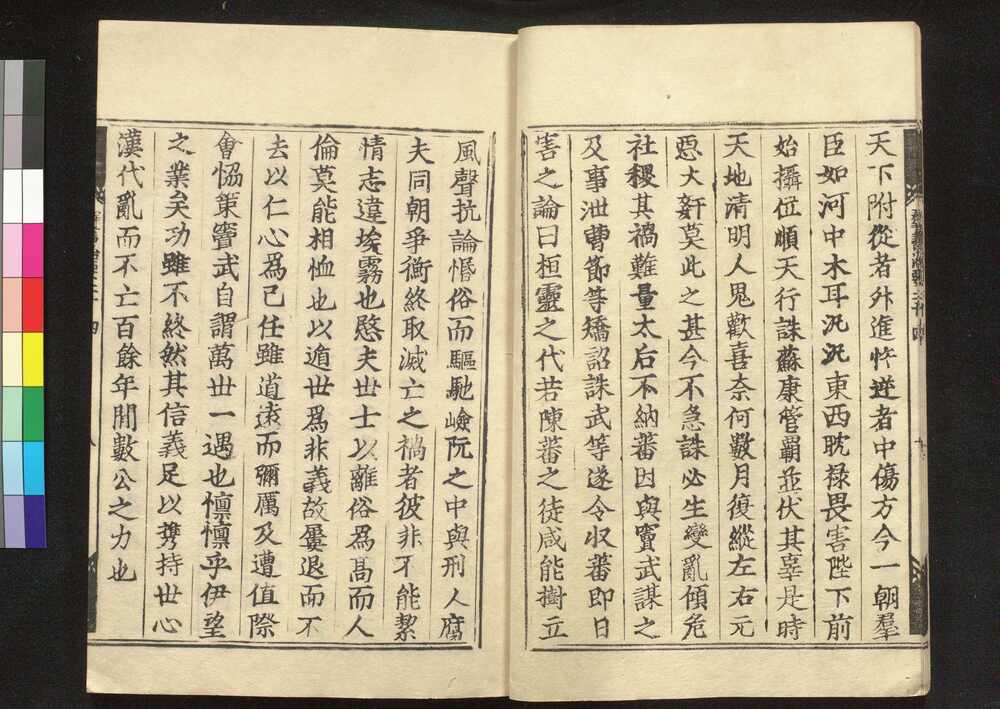 天下附從者外進忤逆者中傷方今一朝羣
臣如河中木耳汎汎東西耽祿畏害陛下前
始攝位順天行誅蘇康管霸並伏其辜是時
天地清明人鬼歡喜奈何數月復縱左右元
惡大姧莫此之甚今不急誅必生變亂傾危
社稷其禍難量太后不納蕃因與竇武謀之
及事泄曹節等矯詔誅武等遂令収蕃即日
害之論曰桓靈之代若陳蕃之徒咸能樹立
風聲抗論惛俗而驅馳嶮阨之中與刑人腐
夫同朝爭衡終取滅亡之禍者彼非不能絜
情志違埃霧也愍夫世士以離俗爲高而人
倫莫能相恤也以遁世爲非義故屢退而不
去以仁心爲己任雖道遠而彌厲及遭值際
會恊策竇武自謂萬世一遇也懍懍乎伊望
之業矣功雖不終然其信義足以携持世心
漢代亂而不亡百餘年間數公之力也